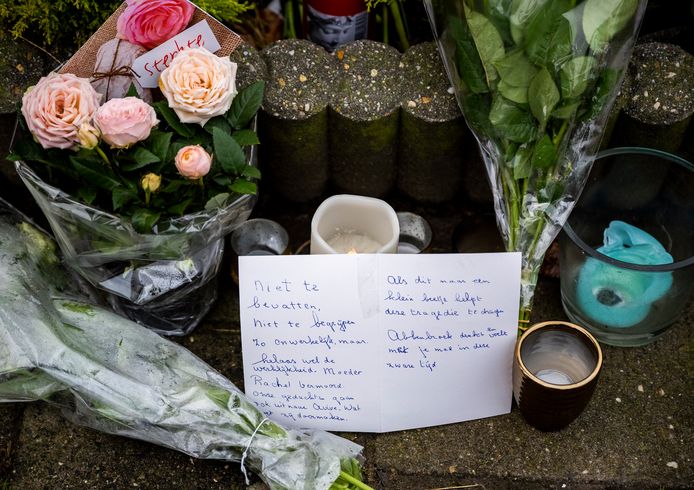 Sterkte
Niet te
bevatten,
Niet te begrijpen
zo onwerkelijk, maar
helaas wel de
werkelijkheid. Moeder
Rachel vermoord
onze gedachten gaan
ook uit naar Wat
zij doormaken.
Als dit maar een
klein beetje helpt
deze tragedie te dragen
denkt en
met je mee in deze
zware tijd